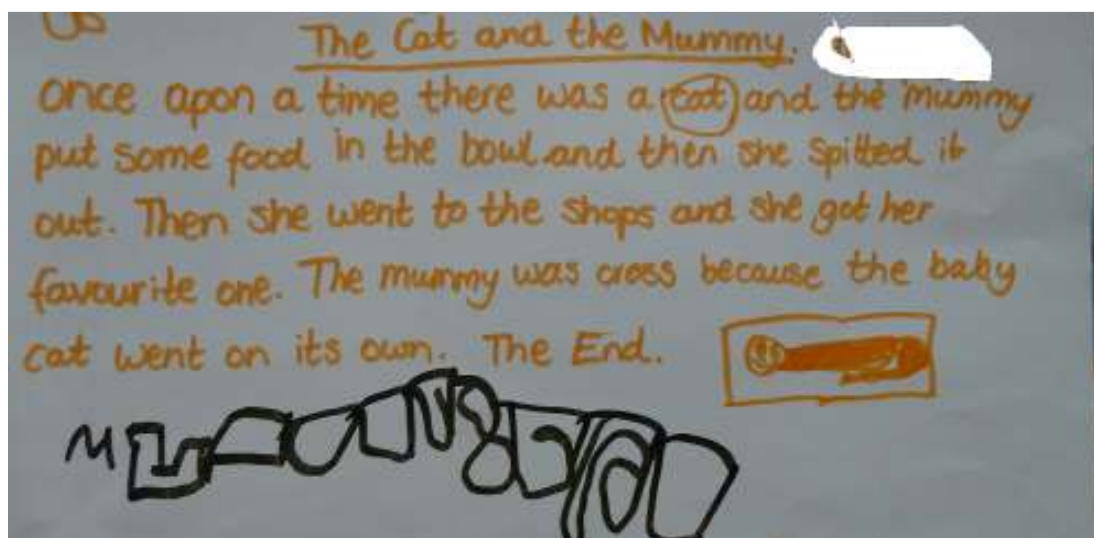 The Cat and the Mummy.
Once apon a time there was a cat and the mummy
put some food in the bowl and then she spitted it
out. Then she went to the shops and she got her
favourite one. The mummy was cross because the baby
cat went on its own. The End.
M